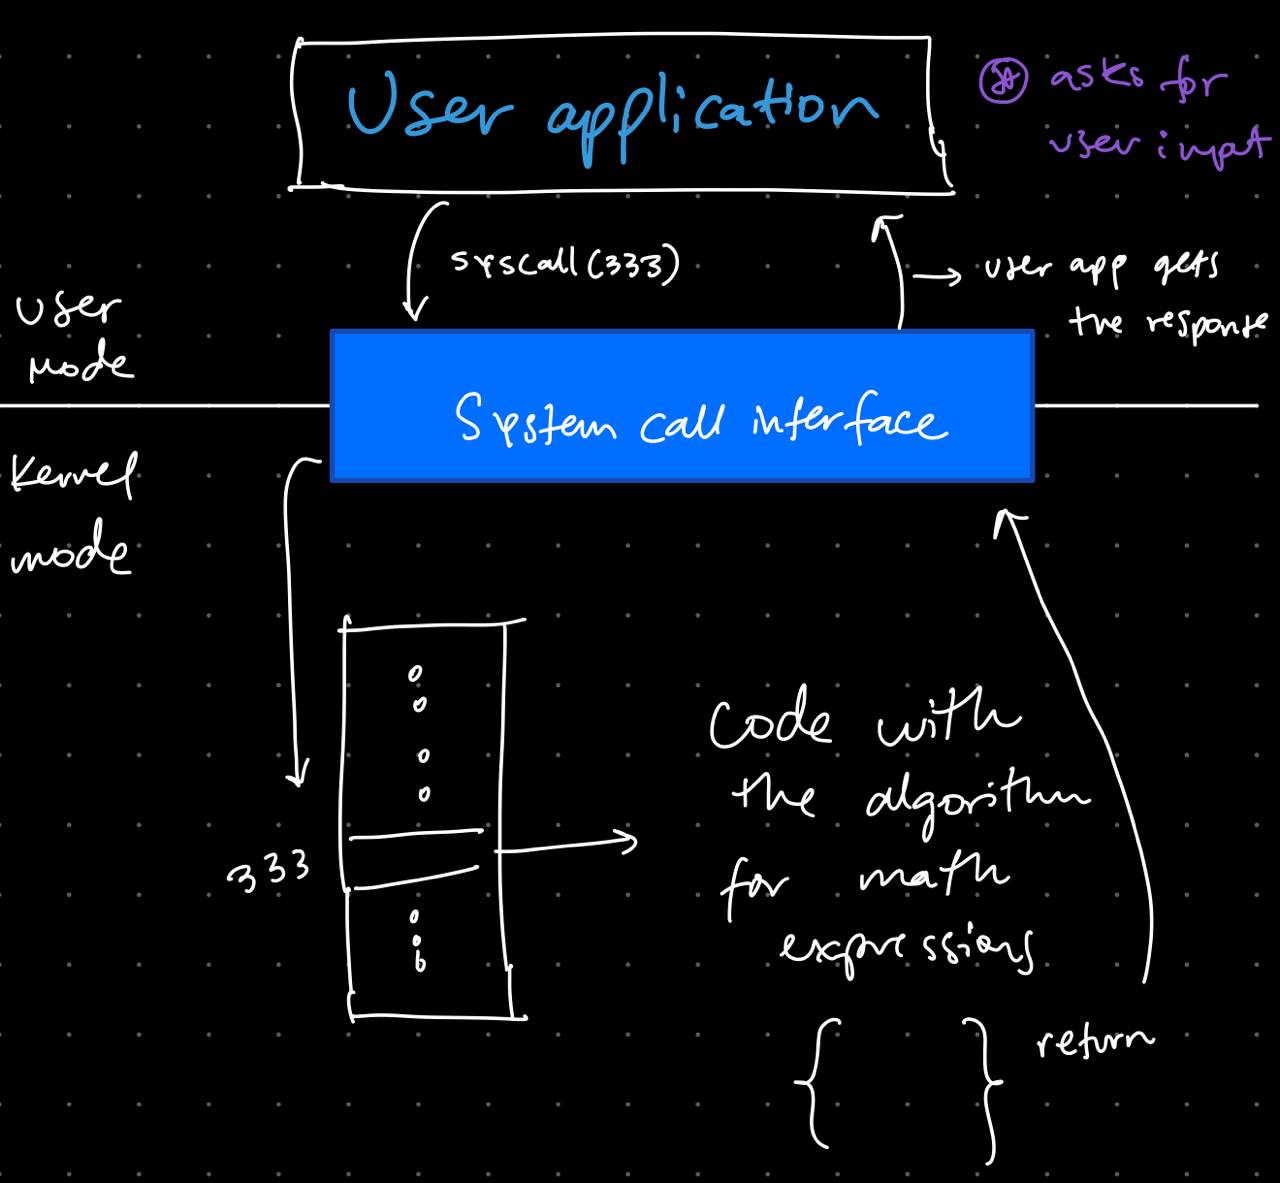 User application
asks for
user input
syscall(333)
user app gets
the response
User
Mode
System call interface
Kernel
mode
333
Code with
the algorithm
for math
expressions
{ }
return